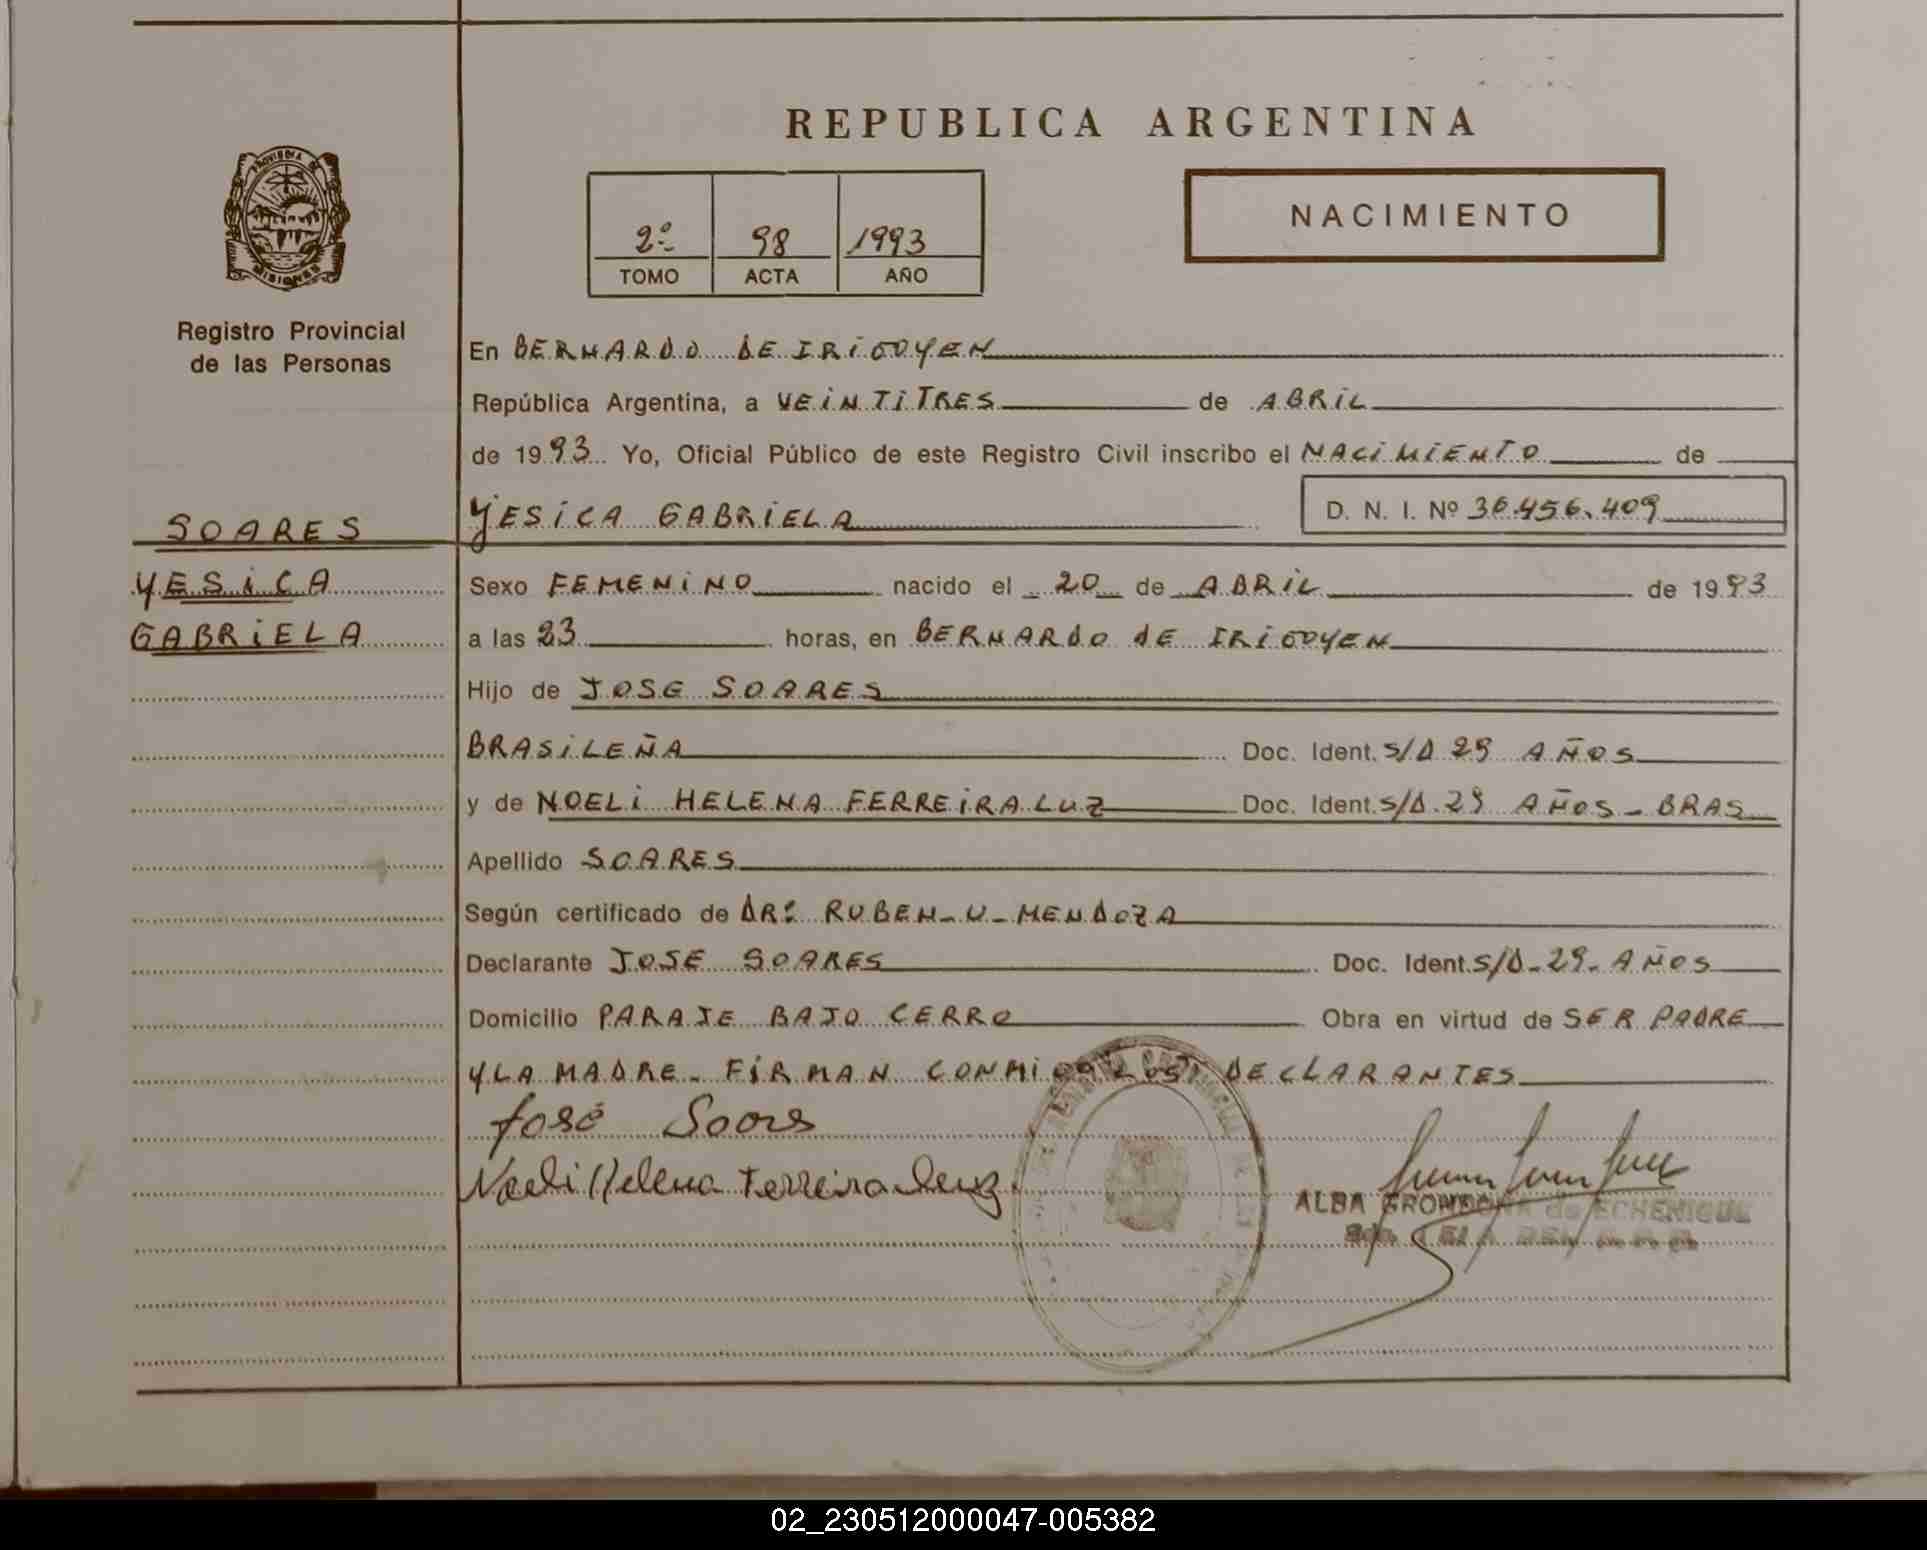 REPUBLICA ARGENTINA
PROVINCIA DE
MISIONES
NACIMIENTO
2º 98 1993
TOMO ACTA AÑO
Registro Provincial
de las Personas
En BERNARDO DE IRIGOYEN
República Argentina, a VEINTITRES de ABRIL
de 1993 Yo, Oficial Público de este Registro Civil inscribo el NACIMIENTO de
SOARES
YESICA GABRIELA D. N. I. Nº 36.456.409
YESICA
Sexo FEMENINO nacido el 20 de ABRIL de 1993
GABRIELA
a las 23 horas, en BERNARDO DE IRIGOYEN
Hijo de JOSE SOARES
BRASILEÑA Doc. Ident. S/D 29 AÑOS
y de NOELI HELENA FERREIRA LUZ Doc. Ident. S/D. 29 AÑOS - BRAS
Apellido SOARES
Según certificado de DR: RUBEN - U - MENDOZA
Declarante JOSE SOARES Doc. Ident. S/D - 29 - AÑOS
Domicilio PARAJE BAJO CERRO Obra en virtud de SER PADRE
Y LA MADRE - FIRMAN CONMIGO LOS DECLARANTES
José Soares
Noeli Helena Ferreira Luz
ALBA GRONDONA de ECHENIQUE
02_230512000047-005382